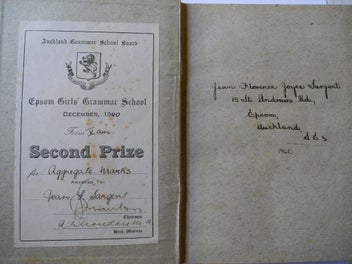 Auckland Grammar School Board
Epsom Girls' Grammar School
DECEMBER, 1940
Form
Second Prize
for Aggregate Marks
AWARDED TO:
Jean F Sargent
Chairman
Head Mistress
Jean Florence Joyce Sargent
15 St Andrews Rd.,
Epsom,
Auckland,
S.E.3
1940